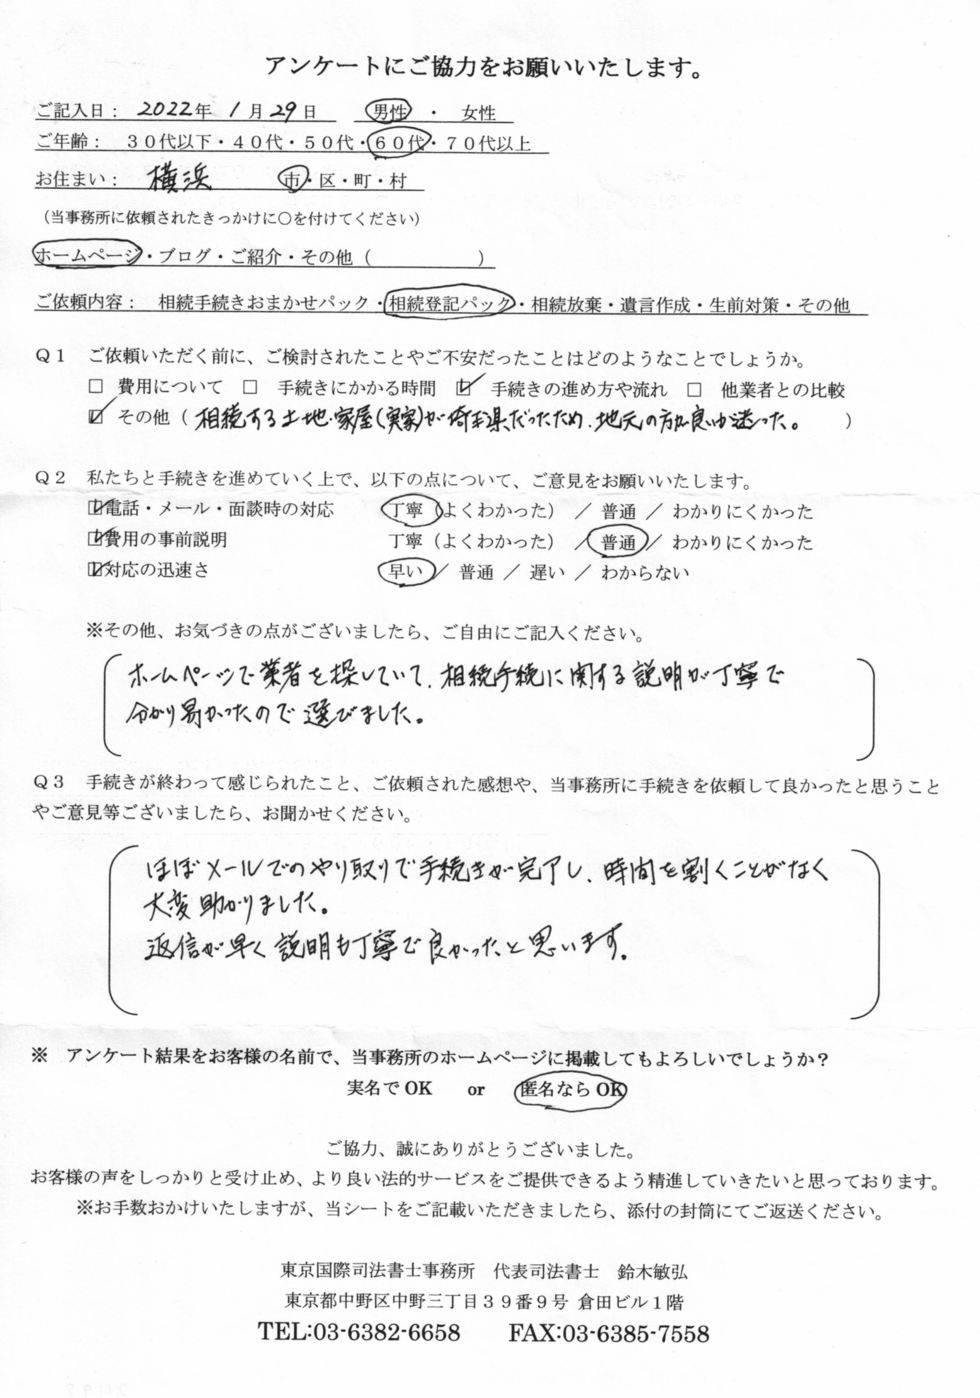 アンケートにご協力をお願いいたします。
ご記入日： 2022年 1月29日 男性 ・ 女性
ご年齢： ３０代以下・４０代・５０代・６０代・７０代以上
お住まい： 横浜 市・区・町・村
（当事務所に依頼されたきっかけに○を付けてください）
ホームページ・ブログ・ご紹介・その他（ ）
ご依頼内容： 相続手続きおまかせパック・相続登記パック・相続放棄・遺言作成・生前対策・その他
Ｑ１ ご依頼いただく前に、ご検討されたことやご不安だったことはどのようなことでしょうか。
□ 費用について □ 手続きにかかる時間 ☑ 手続きの進め方や流れ □ 他業者との比較
☑ その他（ 相続する土地・家屋(実家)が埼玉県だったため、地元の方が良いか迷った。 ）
Ｑ２ 私たちと手続きを進めていく上で、以下の点について、ご意見をお願いいたします。
☑電話・メール・面談時の対応 丁寧（よくわかった） ／ 普通 ／ わかりにくかった
☑費用の事前説明 丁寧（よくわかった） ／ 普通 ／ わかりにくかった
☑対応の迅速さ 早い ／ 普通 ／ 遅い ／ わからない
※その他、お気づきの点がございましたら、ご自由にご記入ください。
ホームページで業者を探していて、相続手続に関する説明が丁寧で
分かり易かったので選びました。
Ｑ３ 手続きが終わって感じられたこと、ご依頼された感想や、当事務所に手続きを依頼して良かったと思うこと
やご意見等ございましたら、お聞かせください。
ほぼメールでのやり取りで手続きが完了し、時間を割くことがなく
大変助かりました。
返信が早く説明も丁寧で良かったと思います。
※ アンケート結果をお客様の名前で、当事務所のホームページに掲載してもよろしいでしょうか？
実名でOK or 匿名ならOK
ご協力、誠にありがとうございました。
お客様の声をしっかりと受け止め、より良い法的サービスをご提供できるよう精進していきたいと思っております。
※お手数おかけいたしますが、当シートをご記載いただきましたら、添付の封筒にてご返送ください。
東京国際司法書士事務所 代表司法書士 鈴木敏弘
東京都中野区中野三丁目３９番９号 倉田ビル１階
TEL:03-6382-6658 FAX:03-6385-7558